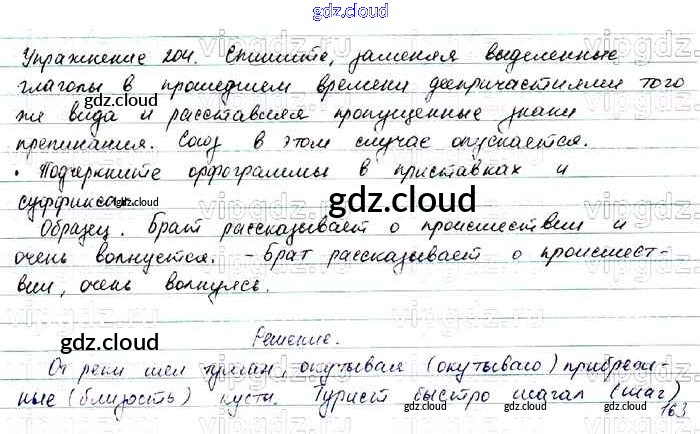 gdz.cloud
Упражнение 204. Спишите, заменяя выделенные
глаголы в прошедшем времени деепричастиями того
gdz.cloud
же вида и расставляя пропущенные знаки
препинания. Союз в этом случае опускается.
• Подчеркните орфограммы в приставках и
суффиксах.
gdz.cloud
gdz.cloud
Образец. Брат рассказывает о происшествии и
очень волнуется. - Брат рассказывает о происшест-
вии, очень волнуясь.
gdz.cloud
gdz.cloud
Решение.
От реки шел туман, окутывая (окутываю) прибреж-
ные (близость) кусты. Турист быстро шагал (шаг)
163